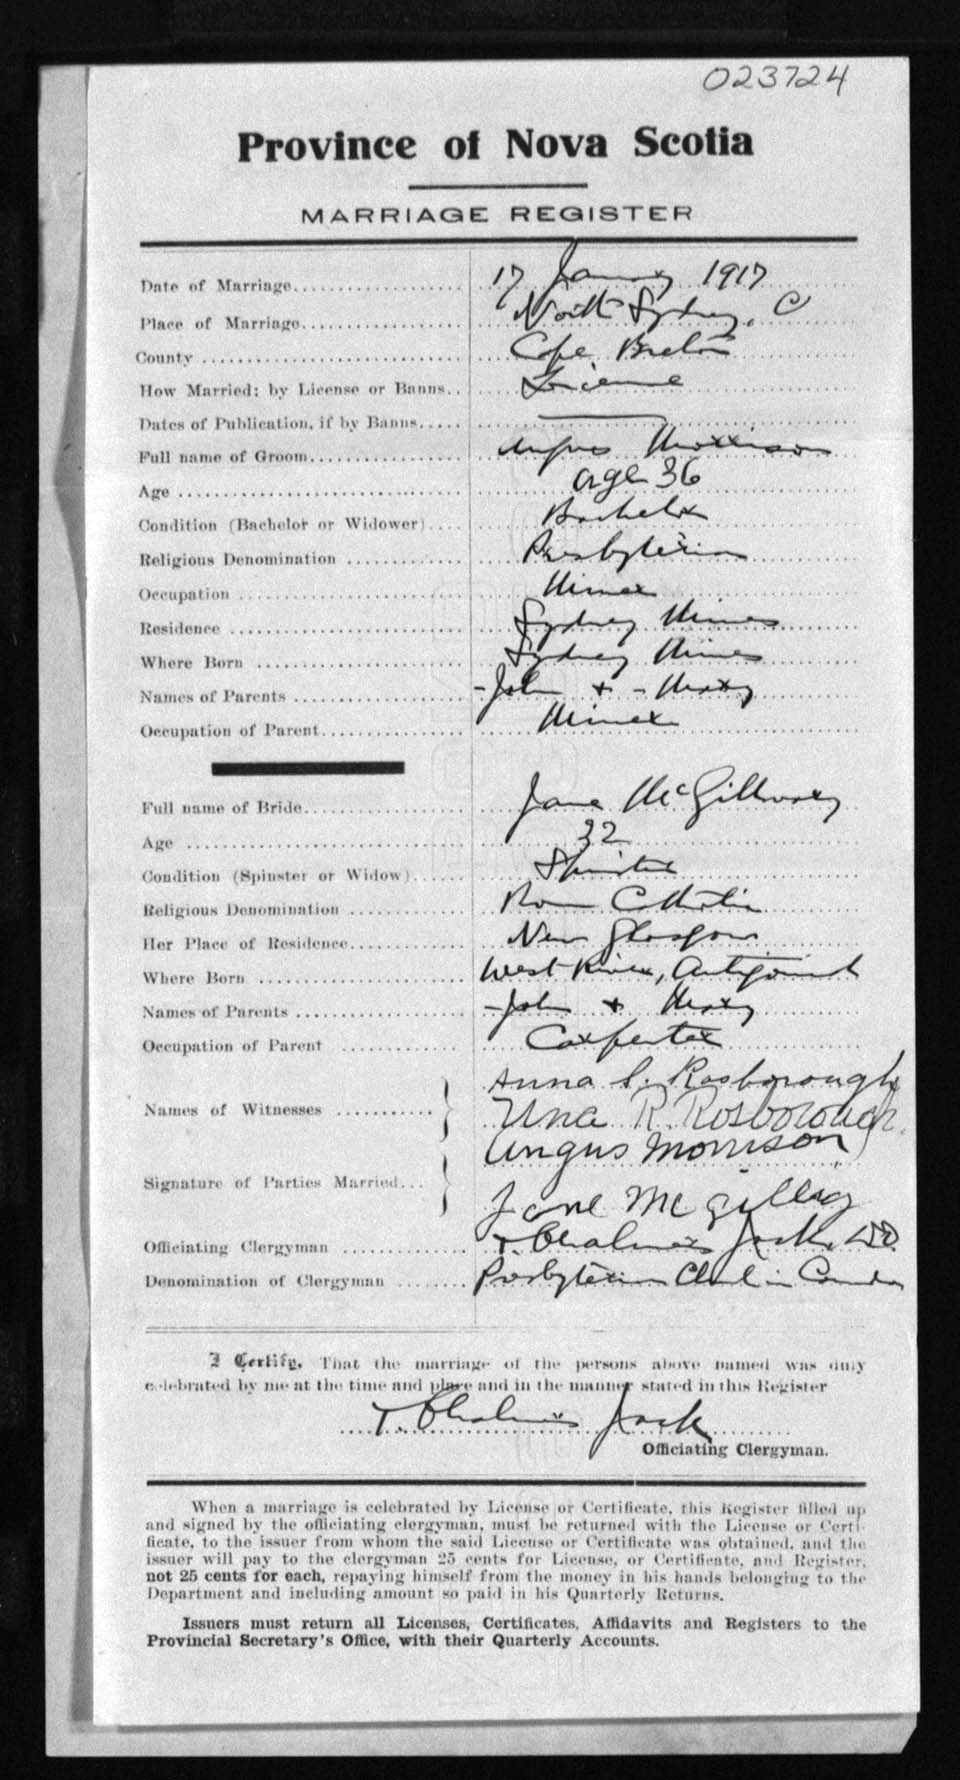 023724
Province of Nova Scotia
MARRIAGE REGISTER
Date of Marriage 17 January 1917
Place of Marriage North Sydney, C
County Cape Breton
How Married: by License or Banns License
Dates of Publication, if by Banns
Full name of Groom Angus Morrison
Age age 36
Condition (Bachelor or Widower) Bachelor
Religious Denomination Presbyterian
Occupation Miner
Residence Sydney Mines
Where Born Sydney Mines
Names of Parents - John + - Mary
Occupation of Parent Miner
Full name of Bride Jane McGillivray
Age 32
Condition (Spinster or Widow) Spinster
Religious Denomination Roman Catholic
Her Place of Residence New Glasgow
Where Born West River, Antigonish
Names of Parents - John + Mary
Occupation of Parent Carpenter
Names of Witnesses Anna S. Rosborough
Una R. Rosborough
Signature of Parties Married Angus Morrison
Jane McGillvry
Officiating Clergyman T. Chalmers Jack, DD.
Denomination of Clergyman Presbyterian Church in Canada
I Certify, That the marriage of the persons above named was duly
celebrated by me at the time and place and in the manner stated in this Register
T. Chalmers Jack
Officiating Clergyman.
When a marriage is celebrated by License or Certificate, this Register filled up
and signed by the officiating clergyman, must be returned with the License or Certi-
ficate, to the issuer from whom the said License or Certificate was obtained, and the
issuer will pay to the clergyman 25 cents for License, or Certificate, and Register,
not 25 cents for each, repaying himself from the money in his hands belonging to the
Department and including amount so paid in his Quarterly Returns.
Issuers must return all Licenses, Certificates, Affidavits and Registers to the
Provincial Secretary's Office, with their Quarterly Accounts.